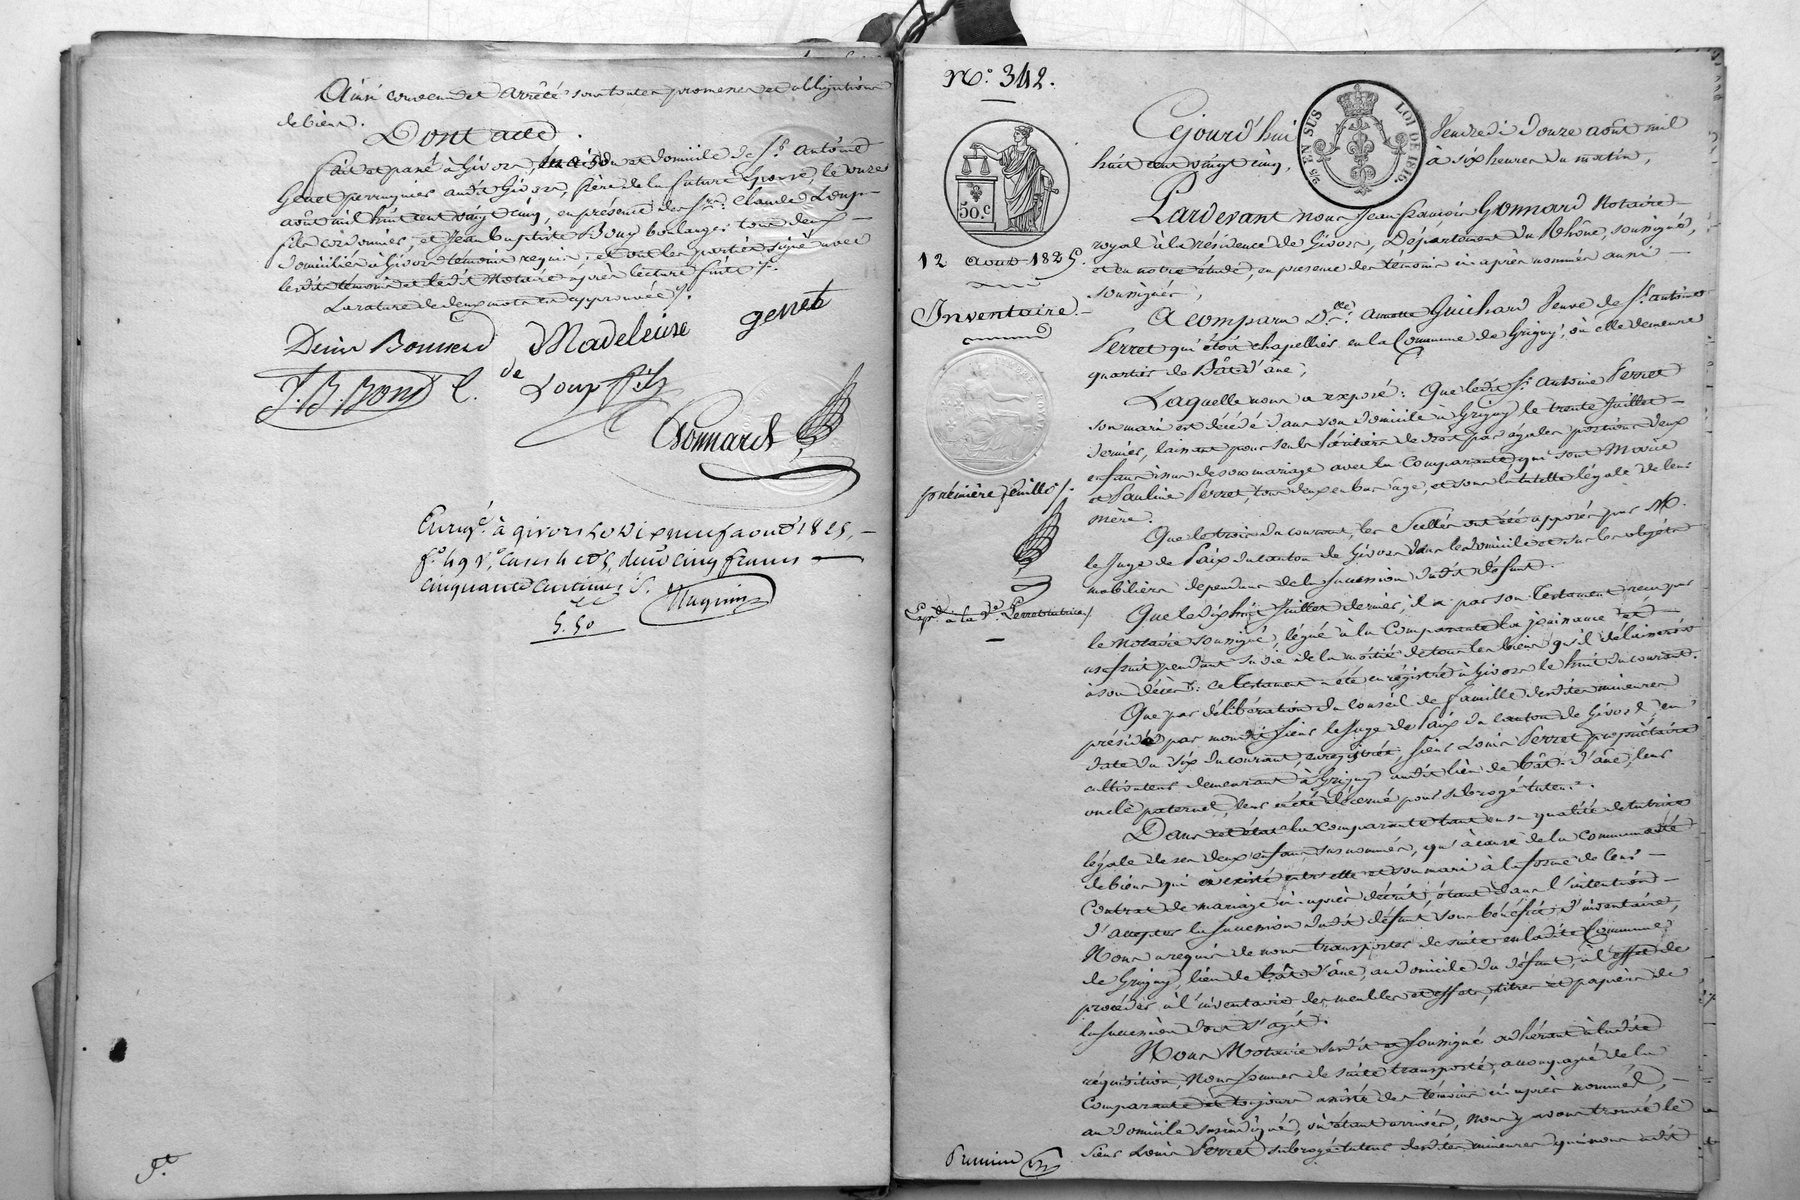 Ainsi convenu et arrêté sous toutes promesses et obligations
de biens.
Dont acte.
fait et passé à Givors, maison et domicile de Sr. Antoine
Genet perruquier audit Givors, frère de la future épouse, le onze
août mil huit cent vingt cinq, en présence des Srs. Claude Loup
fils cordonnier, et Jean Baptiste Bony boulanger tous deux
domiciliés à Givors témoins requis; et ont les parties signé avec
lesdits témoins et ledit Notaire après lecture faite /.
La rature de deux mots est approuvée /.
Madeleine genet
J. B. Bony C. de Loup fils
Gonnard
Enregé. à givors le dix neuf aout 1825,
fo. 49 vo. cases 4 et 5, reçu cinq francs
cinquante centimes /.
5.50
No. 342.
EN SUS
LOI DE 1816.
50.c
12 Aout 1825.
Inventaire
première feuille /.
Expd. à la ve. Perret tutrice /
Cejourd'hui Vendredi douze août mil
huit cent vingt cinq, à six heures du matin,
Pardevant nous Jean François Gonnard Notaire
royal à la résidence de Givors, Département du Rhône, soussigné,
et en notre étude, en présence des témoins ci après nommés aussi
soussignés,
A comparu Dlle. Guichard Veuve de Sr. Antoine
Perret qui étoit chapellier en la Commune de Grigny, où elle demeure
quartier de Bât d'âne,
Laquelle nous a exposé: Que ledit Sr. Antoine Perret
son mari est décédé dans son domicile à Grigny le trente Juillet
dernier, laissant pour seuls héritiers de droit par égales portions deux
enfans issus de son mariage avec la comparante qui sont Marie
et Pauline Perret, tous deux en bas âge, et sous la tutelle légale de leur
mère.
Que le trois du courant, les Scellés ont été apposés par M.
le Juge de Paix du canton de Givors dans le domicile et sur les objets
mobiliers dépendans de la succession dudit défunt.
Que le dix huit Juillet dernier, il a par son Testament reçu par
le Notaire soussigné, légué à la comparante la jouissance et
usufruit pendant sa vie de la moitié de tous les biens qu'il délaisseroit
à son décès: ce Testament a été enregistré à Givors le huit du courant.
Que par délibération du conseil de famille desdites mineures
présidé par mondit Sieur le Juge de Paix du canton de Givors, en
date du six du courant, enregistrée, Sieur Louis Perret propriétaire
cultivateur demeurant à Grigny audit lieu de bât d'âne, leur
oncle paternel, leur a été décerné pour subrogé tuteur.
Dans cet état la comparante tant en sa qualité de tutrice
légale de ses deux enfans susnommés, qu'à cause de la communauté
de biens qui a existé entre elle et son mari à la forme de leur
Contrat de mariage ci après décrit, étant dans l'intention
d'accepter la succession dudit défunt sous bénéfice d'inventaire,
Nous a requis de nous transporter de suite en ladite Commune
de Grigny, lieu de bât d'âne, au domicile du défunt, à l'effet de
procéder à l'inventaire des meubles et effets, titres et papiers de
la succession dont s'agit.
Nous Notaire susdit et soussigné adhérant à ladite
réquisition, Nous sommes de suite transporté, accompagné de la
Comparante et toujours assisté des témoins ci après nommés,
au domicile susindiqué, où étant arrivés, nous y avons trouvé le
Sieur Louis Perret subrogé tuteur desdites mineures qui nous a dit